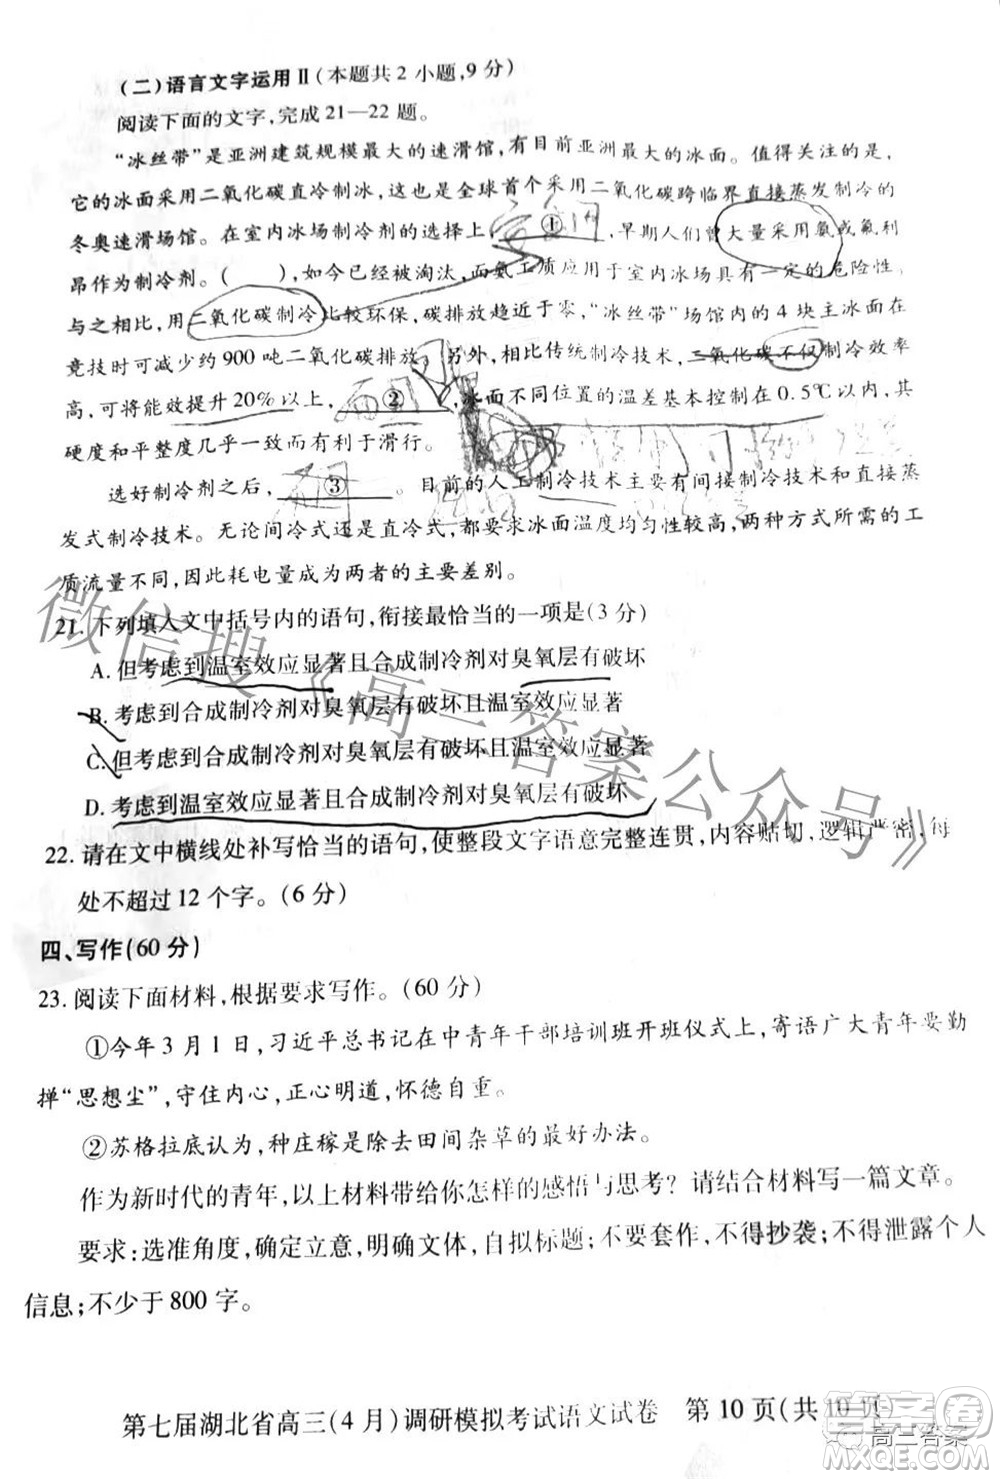 (二)语言文字运用Ⅱ(本题共2小题,9分)
阅读下面的文字,完成21—22题。
“冰丝带”是亚洲建筑规模最大的速滑馆,有目前亚洲最大的冰面。值得关注的是,
它的冰面采用二氧化碳直冷制冰,这也是全球首个采用二氧化碳跨临界直接蒸发制冷的
冬奥速滑场馆。在室内冰场制冷剂的选择上,①,早期人们曾大量采用氨或氟利
昂作为制冷剂。( ),如今已经被淘汰,而氨工质应用于室内冰场具有一定的危险性。
与之相比,用二氧化碳制冷比较环保,碳排放趋近于零,“冰丝带”场馆内的4块主冰面在
竞技时可减少约900吨二氧化碳排放。另外,相比传统制冷技术,二氧化碳不仅制冷效率
高,可将能效提升20%以上,②,冰面不同位置的温差基本控制在0.5℃以内,其
硬度和平整度几乎一致而有利于滑行。
选好制冷剂之后,③。目前的人工制冷技术主要有间接制冷技术和直接蒸
发式制冷技术。无论间冷式还是直冷式,都要求冰面温度均匀性较高,两种方式所需的工
质流量不同,因此耗电量成为两者的主要差别。
21. 下列填入文中括号内的语句,衔接最恰当的一项是(3分)
A. 但考虑到温室效应显著且合成制冷剂对臭氧层有破坏
B. 考虑到合成制冷剂对臭氧层有破坏且温室效应显著
C. 但考虑到合成制冷剂对臭氧层有破坏且温室效应显著
D. 考虑到温室效应显著且合成制冷剂对臭氧层有破坏
22. 请在文中横线处补写恰当的语句,使整段文字语意完整连贯,内容贴切,逻辑严密,每
处不超过12个字。(6分)
四、写作(60分)
23. 阅读下面材料,根据要求写作。(60分)
①今年3月1日,习近平总书记在中青年干部培训班开班仪式上,寄语广大青年要勤
掸“思想尘”,守住内心,正心明道,怀德自重。
②苏格拉底认为,种庄稼是除去田间杂草的最好办法。
作为新时代的青年,以上材料带给你怎样的感悟与思考?请结合材料写一篇文章。
要求:选准角度,确定立意,明确文体,自拟标题;不要套作,不得抄袭;不得泄露个人
信息;不少于800字。
第七届湖北省高三(4月)调研模拟考试语文试卷 第10页(共10页
微信搜《高三答案公众号》
答案圈
高三答案